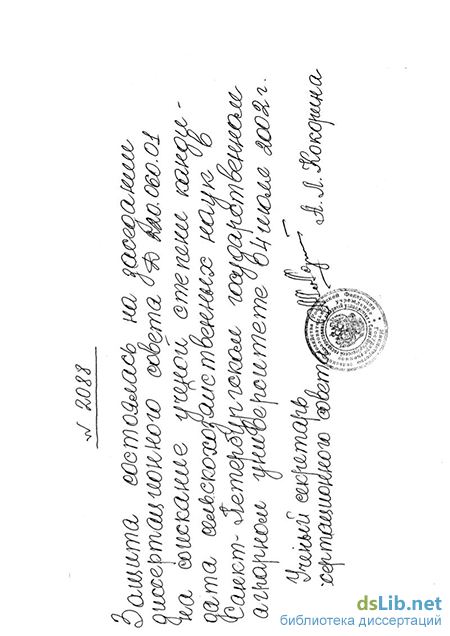 N 2088
Защита состоялась на заседании
диссертационного совета Д 220.060.01
на соискание ученой степени канди-
дата сельскохозяйственных наук
Санкт-Петербургском государственном
аграрном университете 04 июле 2002 г.
Ученый секретарь
сертационного совета А. Л. Кокорина
dsLib.net
библиотека диссертаций